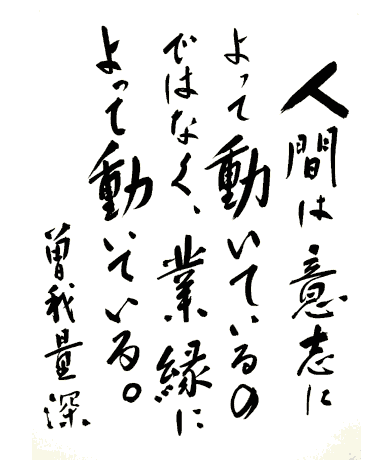 人間は意志に
よって動いているの
ではなく、業縁に
よって動いている。
曽我量深